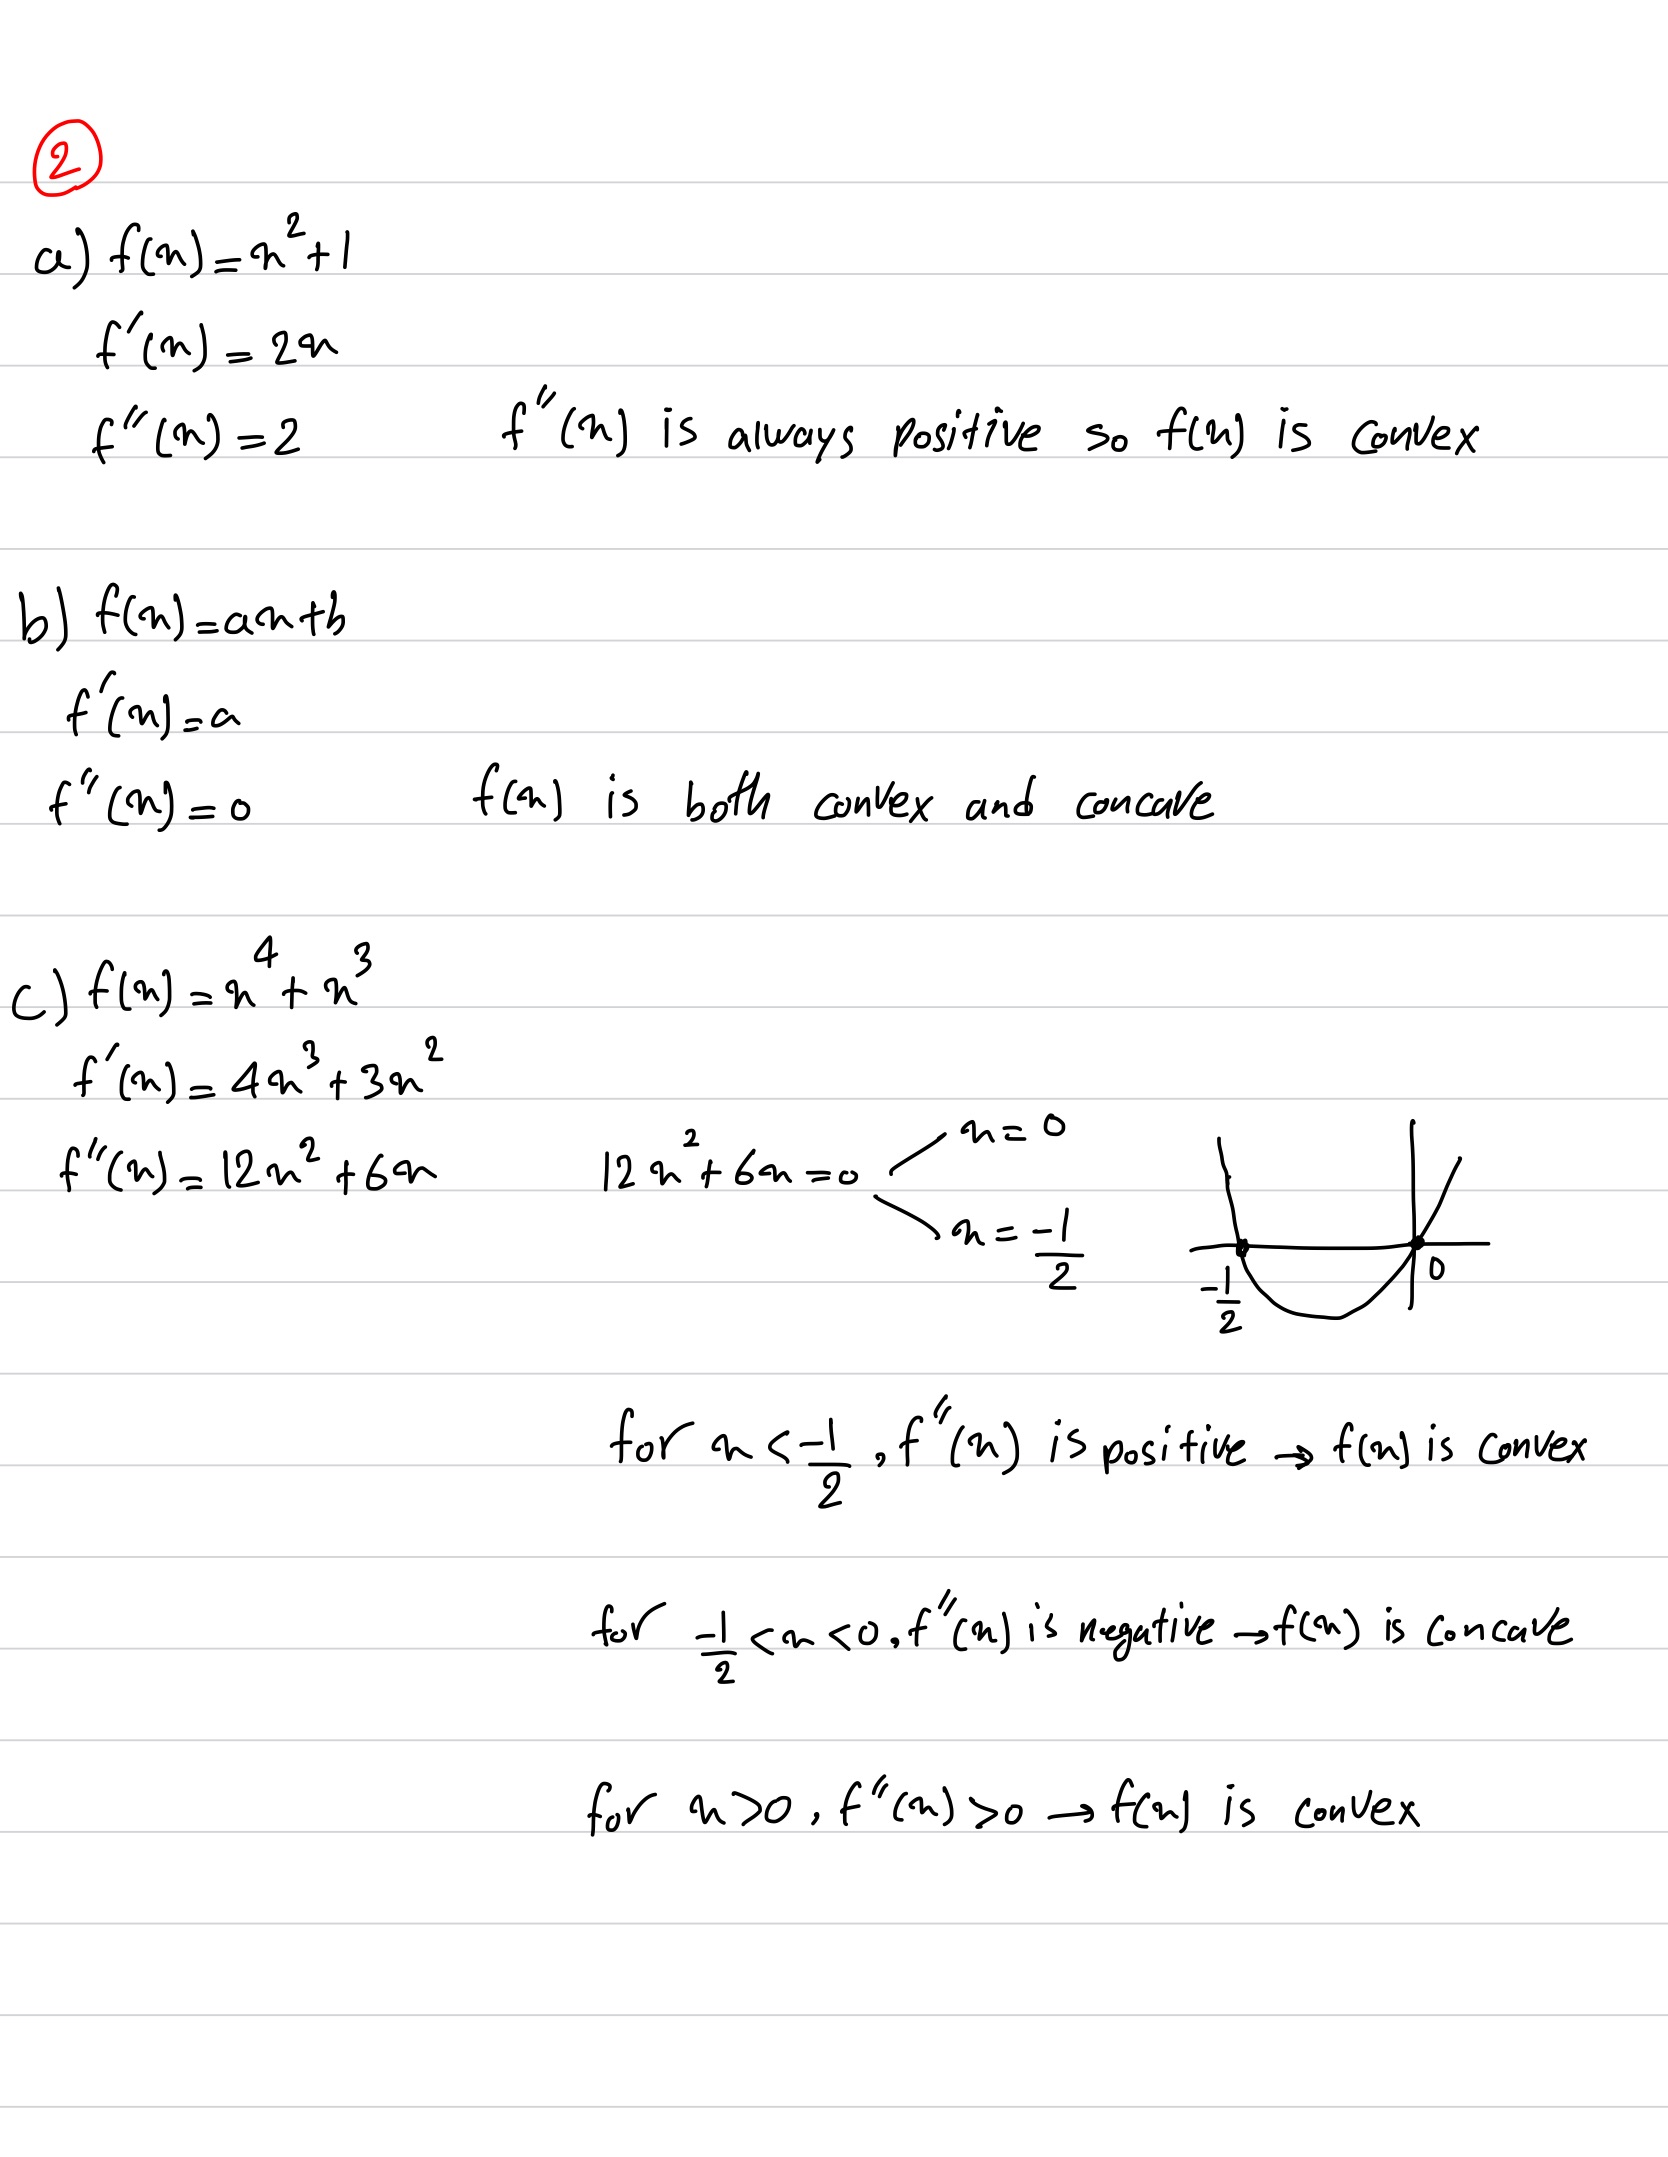 2
a) f(n) = n² + 1
f′(n) = 2n
f″(n) = 2 f″(n) is always positive so f(n) is convex
b) f(n) = an + b
f′(n) = a
f″(n) = 0 f(n) is both convex and concave
c) f(n) = n⁴ + n³
f′(n) = 4n³ + 3n²
f″(n) = 12n² + 6n 12n² + 6n = 0
n = 0
n = -1/2
-1/2 0
for n < -1/2, f″(n) is positive → f(n) is convex
for -1/2 < n < 0, f″(n) is negative → f(n) is concave
for n > 0, f″(n) > 0 → f(n) is convex